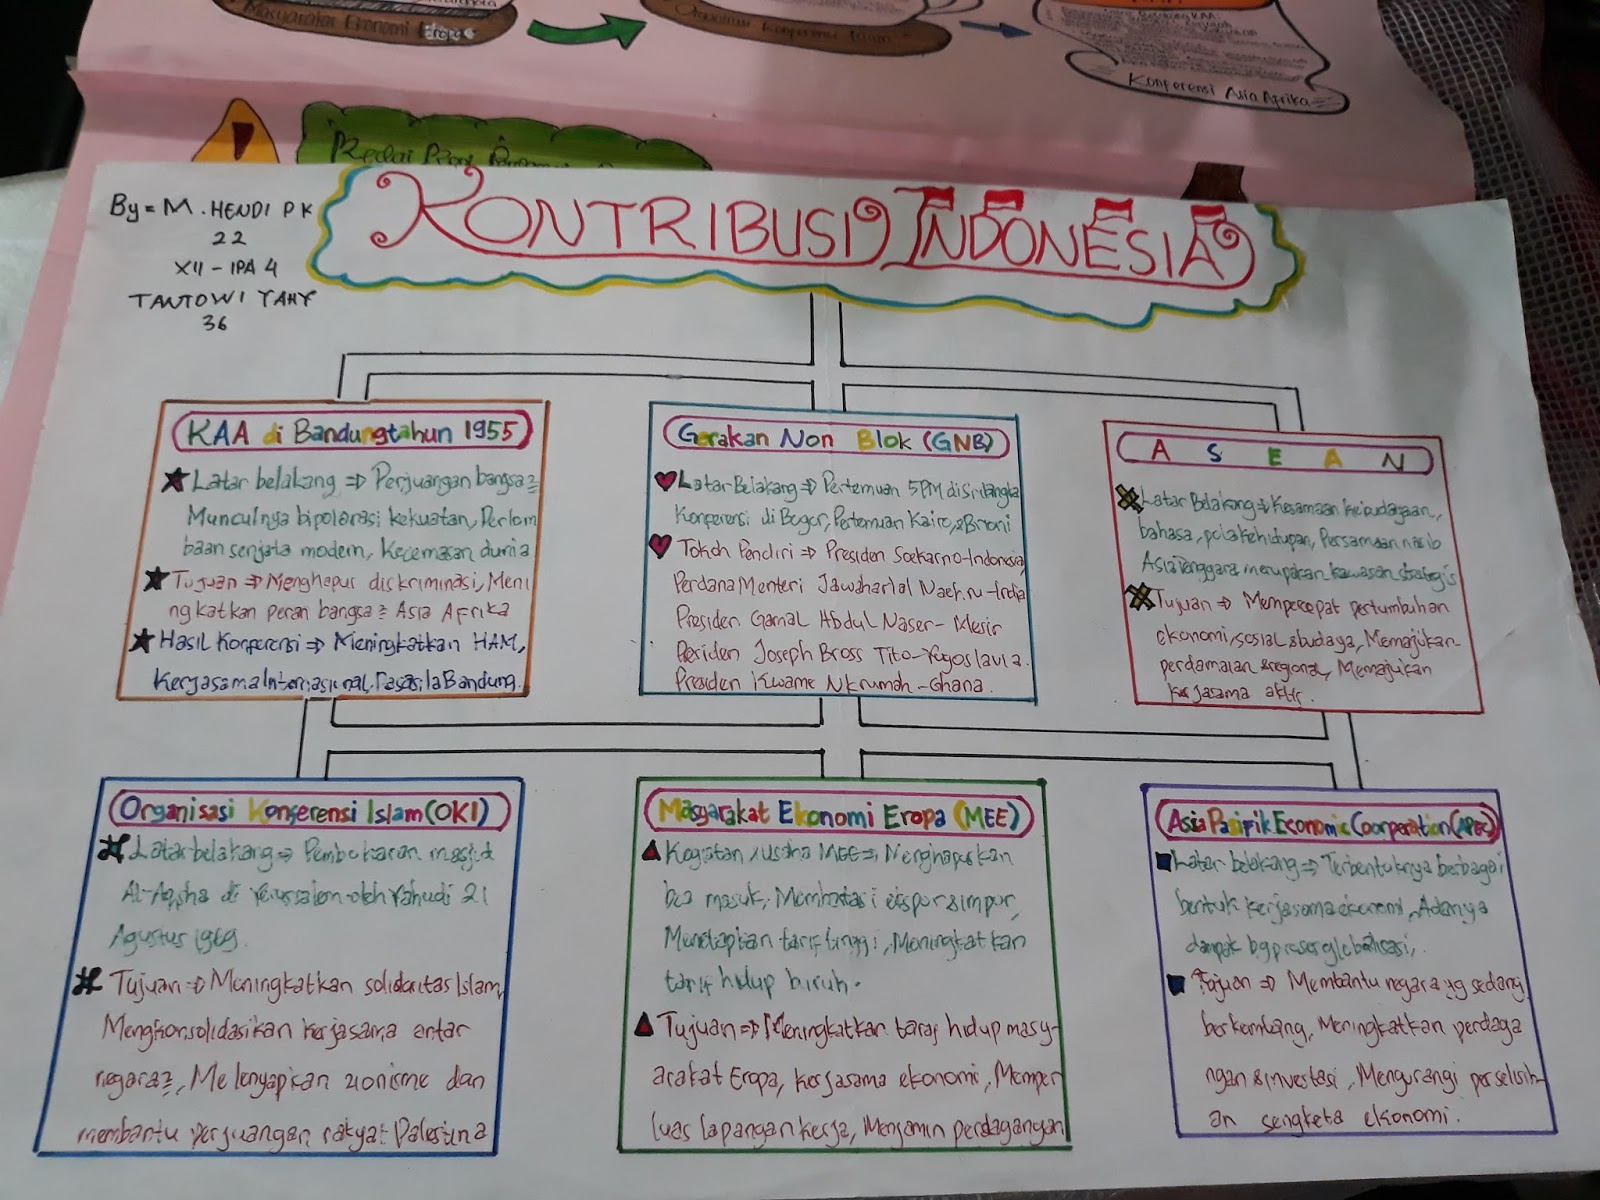 Masyarakat Ekonomi Eropa
Organisasi Konferensi Islam
Konferensi Asia Afrika
By = M. HENDI PK
22
XII - IPA 4
TANTOWI YAHY
36
KONTRIBUSI INDONESIA
KAA di Bandung tahun 1955
Latar belakang => Perjuangan bangsa2
Munculnya bipolarasi kekuatan, Perlom
baan senjata modern, Kecemasan dunia
Tujuan => Menghapus diskriminasi, Meni
ngkatkan peran bangsa2 Asia Afrika
Hasil Konferensi => Meningkatkan HAM,
Kerjasama Internasional, Dasasila Bandung.
Gerakan Non Blok (GNB)
Latar Belakang => Pertemuan 5PM di Srilangka
Konferensi di Bogor, Pertemuan Kairo, & Brioni
Tokoh Pendiri => Presiden Soekarno-Indonesia
Perdana Menteri Jawaharlal Naehru-India
Presiden Gamal Abdul Naser - Mesir
Presiden Joseph Bross Tito-Yugoslavia.
Presiden Kwame Nkrumah - Ghana.
ASEAN
Latar Belakang => Kesamaan kebudayaan,
bahasa, pola kehidupan, Persamaan nasib
Asia Tenggara merupakan kawasan strategis
Tujuan => Mempercepat pertumbuhan
ekonomi, sosial & budaya, Memajukan
perdamaian & regional, Memajukan
kerjasama aktif.
Organisasi Konferensi Islam (OKI)
Latar belakang => Pembakaran masjid
Al-Aqsha di Yerussalem oleh Yahudi 21
Agustus 1969.
Tujuan => Meningkatkan solidaritas Islam,
Mengkonsolidasikan kerjasama antar
negara2, Melenyapkan zionisme dan
membantu perjuangan rakyat Palestina
Masyarakat Ekonomi Eropa (MEE)
Kegiatan / usaha MEE => Menghapuskan
bea masuk, Membatasi ekspor & impor,
Menetapkan tarif tinggi, Meningkatkan
tarif hidup buruh.
Tujuan => Meningkatkan taraf hidup masy-
arakat Eropa, kerjasama ekonomi, Memper
luas lapangan kerja, Menjamin perdagangan
Asia Pasifik Economic Coorperation (APEC)
Latar belakang => Terbentuknya berbagai
bentuk kerjasama ekonomi, Adanya
dampak bg proser globalisasi,
Tujuan => Membantu negara yg sedang
berkembang, Meningkatkan perdaga
ngan & investasi, Mengurangi perselisih-
an sengketa ekonomi.